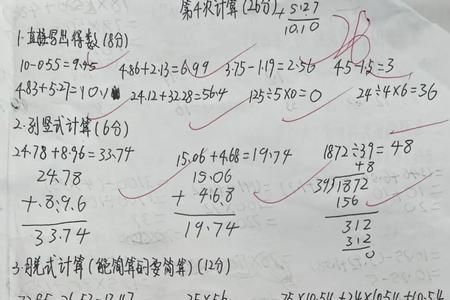 第4次计算(26分)
4.83
+ 5.27
10.10
26
1.直接写出得数(8分)
10-0.55=9.45 4.86+2.13=6.99 3.75-1.19=2.56 4.5-1.5=3
4.83+5.27=10.1 24.12+32.28=56.4 125÷5×0=0 24÷4×6=36
2.列竖式计算(6分)
24.78+8.96=33.74 15.06+4.68=19.74 1872÷39=48
24.78
+ 8.9.6
33.74
15.06
+ 4.6.8
19.74
48
39 1872
156
312
312
0
3.脱式计算(能简算的要简算)(12分)